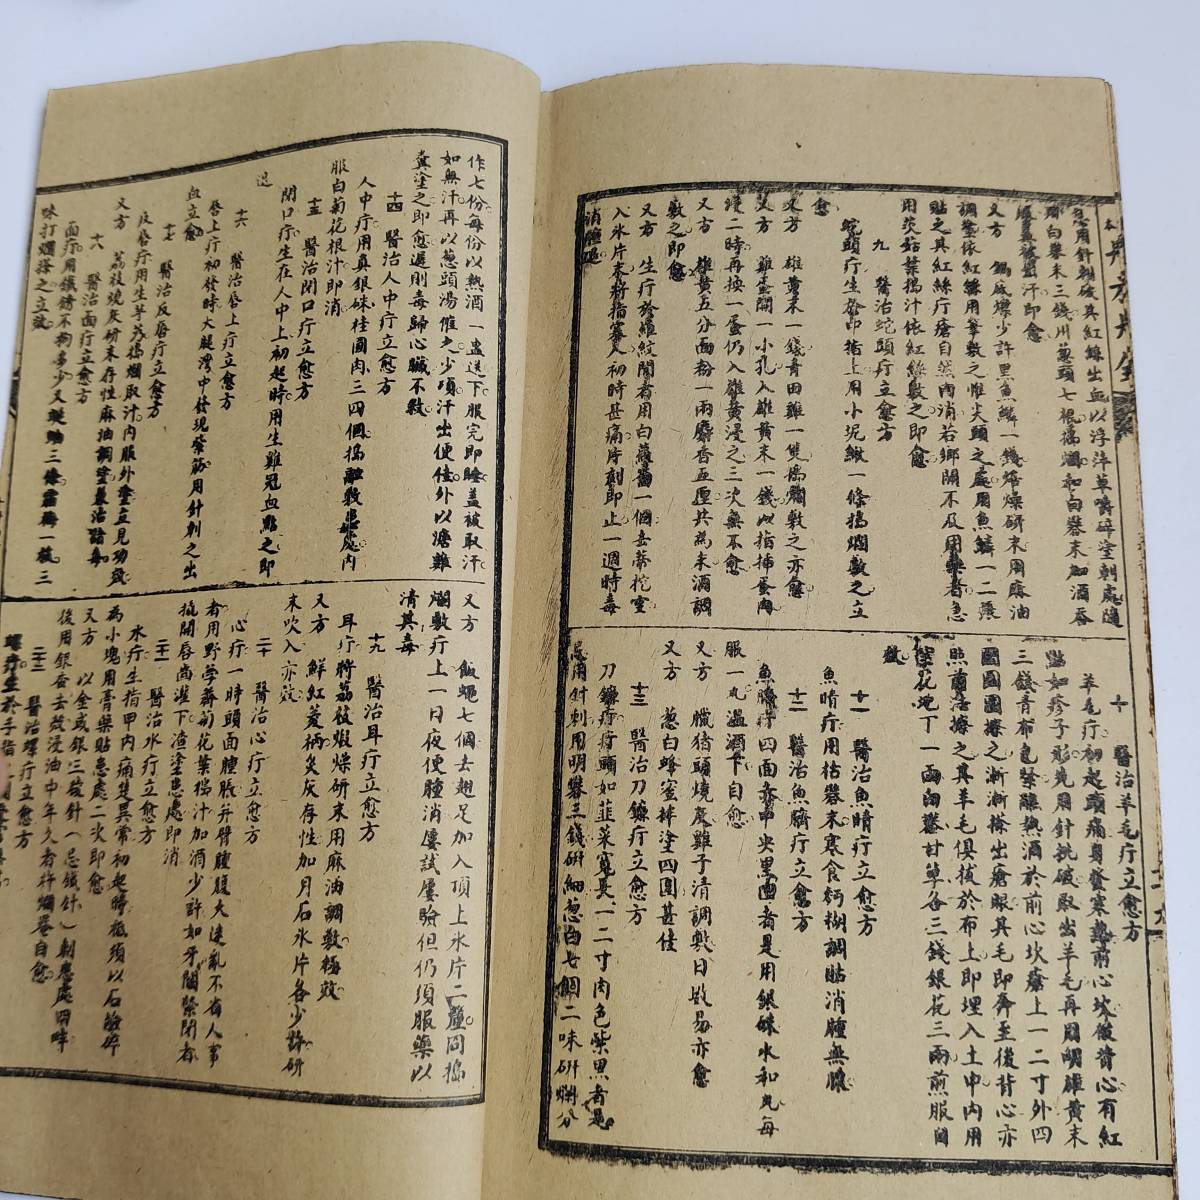 急用針刺破其紅線出血以浮萍草嚼碎塗刺處隨
用白礬末三錢川葱頭七根搗爛和白礬末如酒吞
汗即愈
又方 鍋底煤少許黑魚鱗一錢焙燥研末用麻油
調塗依紅線用筆敷之惟尖頭之處用魚鱗一二蒸
貼之其紅絲疔瘡自然內消若鄉閒不及用藥者急
用茨菇葉搗汁依紅線敷之即愈
九 醫治蛇頭疔立愈方
蛇頭疔生發中指上用小泥鰍一條搗爛敷之立
愈
又方 雄黃末一錢青田雞一隻搗爛敷之亦愈
又方 雞蛋開一小孔入雄黃末一錢以指插蛋內
浸二時再換一蛋仍入雄黃浸之三次無不愈
又方 雄黃五分面粉一兩麝香五厘共為末酒調
敷之即愈
又方 生疔於羅紋間者用白蘿蔔一個去蒂挖空
入氷片末將指塞入初時甚痛片刻即止一週時毒
消腫退
十 醫治羊毛疔立愈方
羊毛疔初起頭痛身發寒熱前心坎後背心有紅
點如疹子形先用針挑破取出羊毛再用明雄黃末
三錢青布包緊蘸熱酒於前心坎瘡上一二寸外四
圍團團擦之漸漸擦出瘡眼其毛即奔至後背心亦
照前法擦之其羊毛俱拔於布上即埋入土中內用
紫花地丁一兩白礬甘草各三錢銀花三兩煎服自
效
十一 醫治魚睛疔立愈方
魚睛疔用枯礬末寒食麪糊調貼消腫無膿
十二 醫治魚臍疔立愈方
魚臍疔四面赤中央黑色者是用銀硃水和丸每
服一丸溫酒下自愈
又方 臘猪頭燒處雞子清調敷日數易亦愈
又方 葱白蜂蜜捧塗四圍甚佳
十三 醫治刀鐮疔立愈方
刀鐮疔疔頭如韮菜寬長一二寸肉色紫黑者是
忌用針刺用明礬三錢研細葱白七個二味研爛分
作七份每份以熱酒一盅送下服完即睡蓋被取汗
如無汗再以葱頭湯催之少頃汗出便佳外以澹雞
糞塗之即愈遲則毒歸心臟不救
十四 醫治人中疔立愈方
人中疔用真銀硃桂圓肉三四個搗融敷患處內
服白菊花根汁即消
十五 醫治閉口疔立愈方
閉口疔生在人中上初起時用生雞冠血點之即
退
十六 醫治唇上疔立愈方
唇上疔初發時大腿灣中發現紫筋用針刺之出
血立愈
十七 醫治反唇疔立愈方
反唇疔用生草芍搗爛取汁內服外塗立見功效
又方 荔枝燒灰研末存性麻油調塗兼治諸毒
十八 醫治面疔立愈方
面疔用鐵銹不拘多少又蜒蚰三條霜梅一枚三
味打爛搽之立效
又方 飯蠅七個去翅足加入頂上氷片二釐同搗
爛敷疔上一日夜便腫消屢試屢驗但仍須服藥以
清其毒
十九 醫治耳疔立愈方
耳疔將荔枝煅燥研末用麻油調敷極效
又方 鮮紅菱柄炙灰存性加月石氷片各少許研
末吹入亦效
二十 醫治心疔立愈方
心疔一時頭面腫脹并臂腫腹大迷亂不省人事
者用野學葬菊花葉搗汁加酒少許如牙關緊閉者
撬開唇齒灌下渣塗患處即消
二十一 醫治水疔立愈方
水疔生指甲內痛楚異常初起時祗須以石鹼碎
為小塊用膏藥貼患處二次即愈
又方 以金或銀三枚針(忌鐵針)刺患處四畔
後用銀杏去殼浸油中年久者杵爛罨自愈
二十二 醫治螺疔立愈方
螺疔生於手指